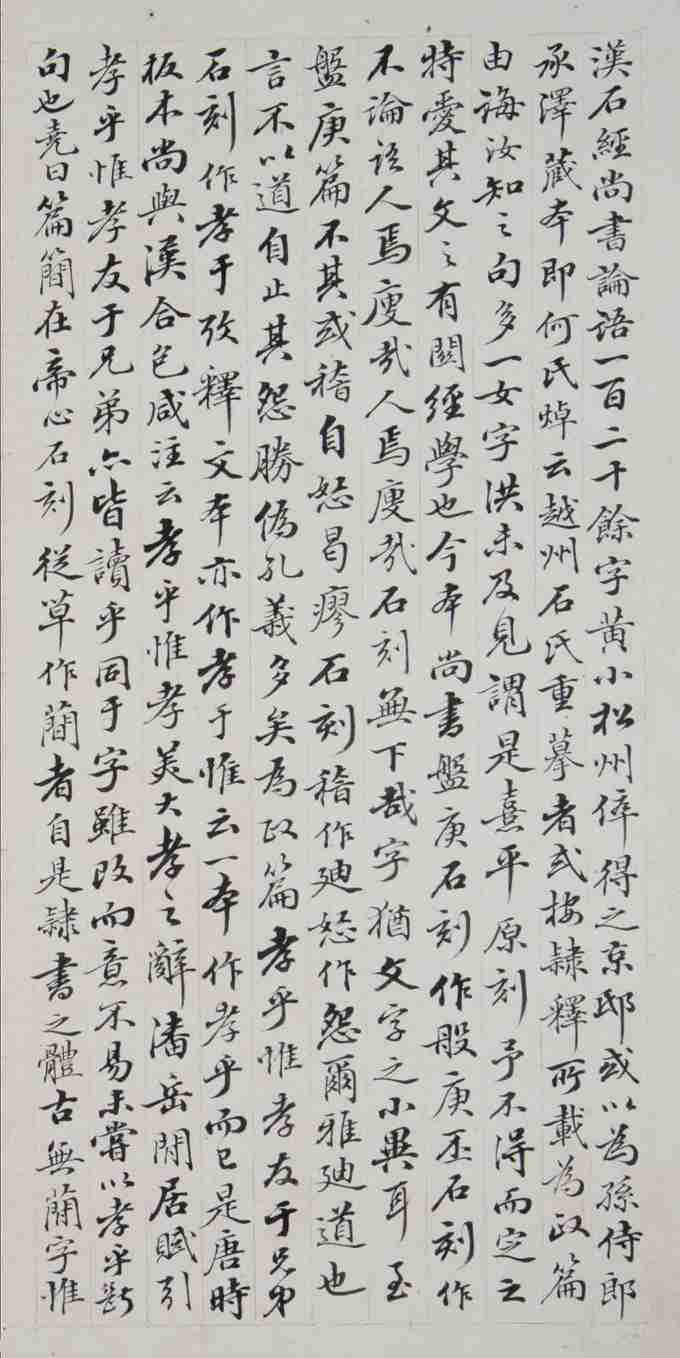 漢石經尚書論語一百二十餘字黄小松州倅得之京邸或以為孫侍郎
承澤藏本即何氏焯云越州石氏重摹者或按隸釋所載為政篇
由誨汝知之句多一女字洪未及見謂是熹平原刻予不得而定之
特愛其文之有關經學也今本尚書盤庚石刻作般庚丕石刻作
不論語人焉廋哉人焉廋哉石刻無下哉字猶文字之小異耳至
盤庚篇不其或稽自怒曷瘳石刻稽作迪怒作怨爾雅迪道也
言不以道自止其怨勝偽孔義多矣為政篇孝乎惟孝友于兄弟
石刻作孝于攷釋文本亦作孝于惟云一本作孝乎而已是唐時
板本尚與漢合包咸注云孝乎惟孝美大孝之辭潘岳閒居賦引
孝乎惟孝友于兄弟亦皆讀乎同于字雖改而意不易未嘗以孝乎斷
句也堯曰篇簡在帝心石刻從草作蕳者自是隸書之體古無蕳字惟